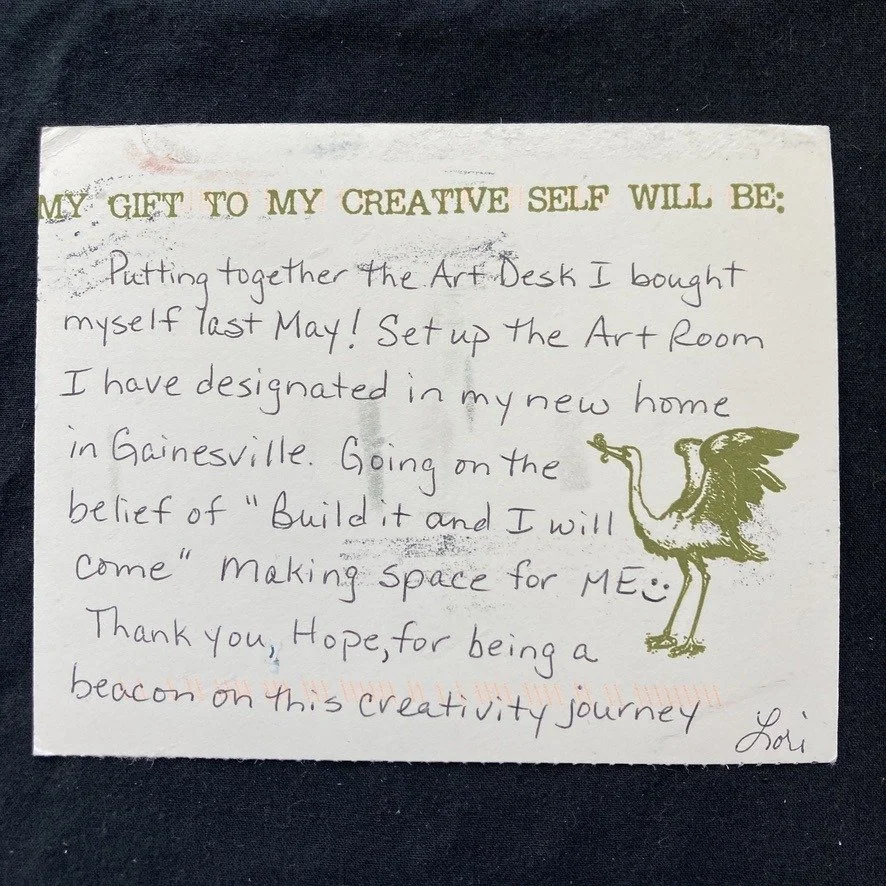 MY GIFT TO MY CREATIVE SELF WILL BE:
Putting together the Art Desk I bought
myself last May! Set up the Art Room
I have designated in my new home
in Gainesville. Going on the
belief of "Build it and I will
come" Making space for ME :)
Thank you, Hope, for being a
beacon on this creativity journey
Lori